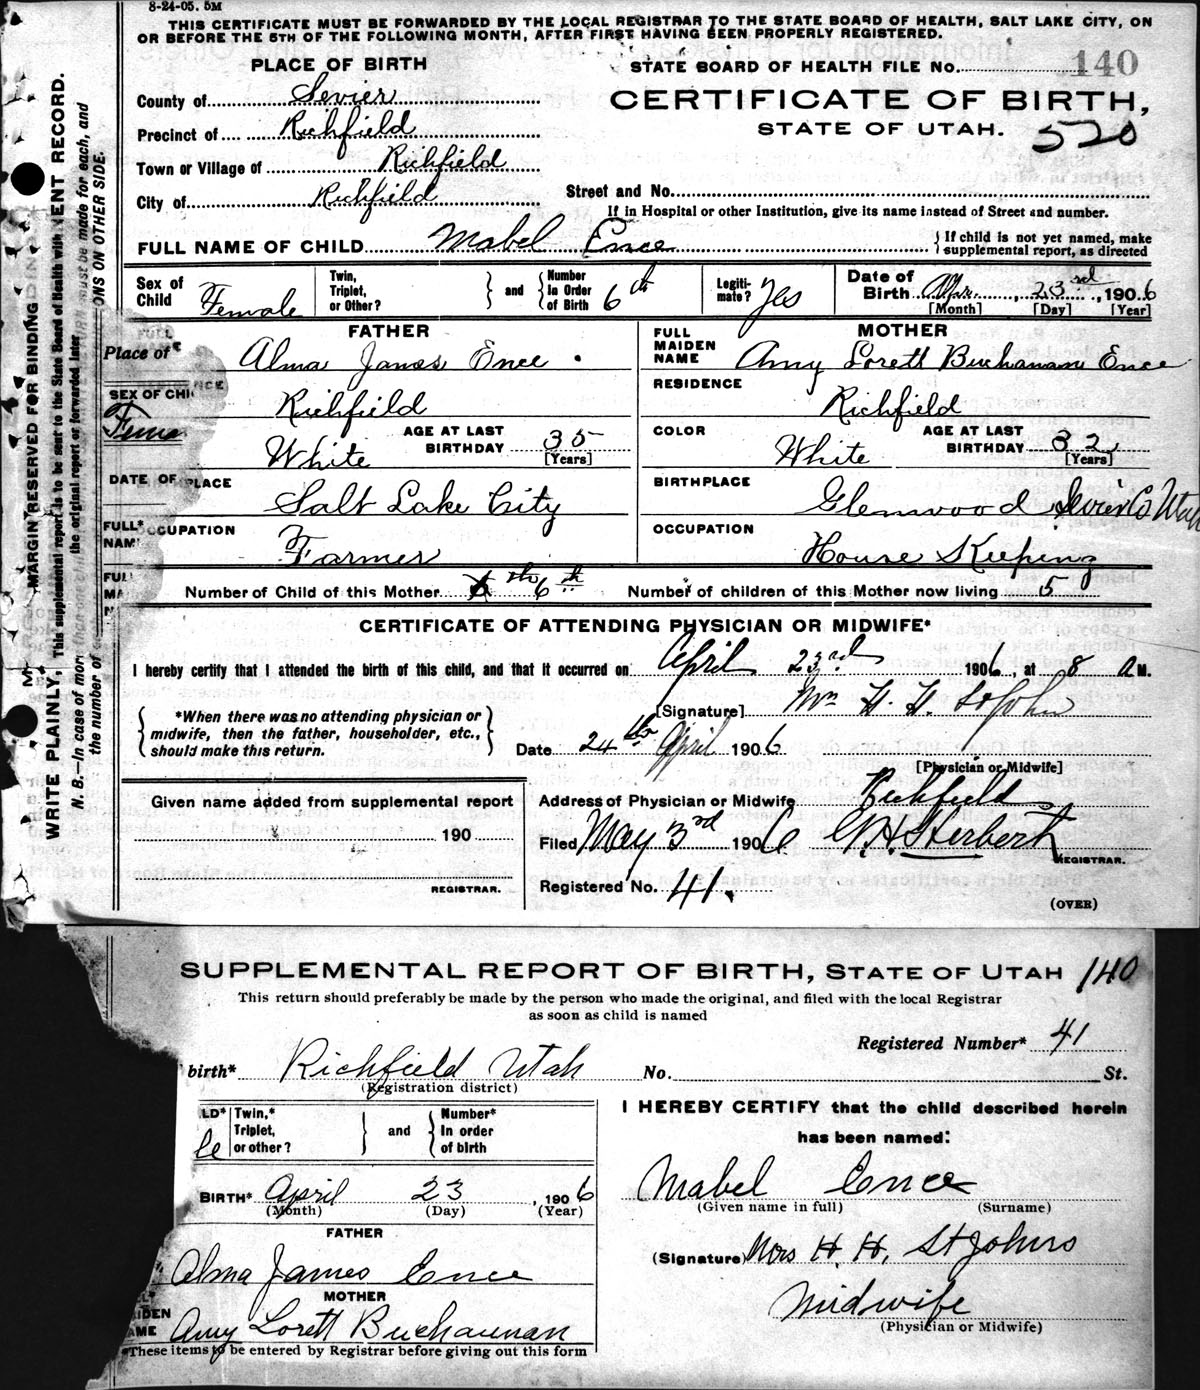 8-24-05. 5M
THIS CERTIFICATE MUST BE FORWARDED BY THE LOCAL REGISTRAR TO THE STATE BOARD OF HEALTH, SALT LAKE CITY, ON
OR BEFORE THE 5TH OF THE FOLLOWING MONTH, AFTER FIRST HAVING BEEN PROPERLY REGISTERED.
PLACE OF BIRTH
STATE BOARD OF HEALTH FILE NO. 140
County of Sevier
CERTIFICATE OF BIRTH,
Precinct of Richfield
STATE OF UTAH.
520
Town or Village of Richfield
City of Richfield
Street and No.
If in Hospital or other Institution, give its name instead of Street and number.
FULL NAME OF CHILD Mabel Ence
If child is not yet named, make supplemental report, as directed
Sex of Child Female
Twin, Triplet, or Other?
and
Number In Order of Birth 6th
Legitimate? Yes
Date of Birth Apr. 23rd, 1906
[Month] [Day] [Year]
FATHER
Alma James Ence
Richfield
White
AGE AT LAST BIRTHDAY 35
[Years]
PLACE
Salt Lake City
OCCUPATION
Farmer
MOTHER
FULL MAIDEN NAME Amy Lorett Buchanan Ence
RESIDENCE
Richfield
COLOR White
AGE AT LAST BIRTHDAY 32
[Years]
BIRTHPLACE
Glenwood Sevier Co Utah
OCCUPATION
House Keeping
Place of*
SEX OF CHI
Fema
DATE OF
FULL*
NAM
FUL
MA
Number of Child of this Mother 6th
Number of children of this Mother now living 5
CERTIFICATE OF ATTENDING PHYSICIAN OR MIDWIFE*
I hereby certify that I attended the birth of this child, and that it occurred on April 23rd 1906, at 8 A M.
*When there was no attending physician or
midwife, then the father, householder, etc.,
should make this return.
[Signature] Mrs H. H. St John
Date 24th April 1906
[Physician or Midwife]
Given name added from supplemental report
190
REGISTRAR.
Address of Physician or Midwife Richfield
Filed May 3rd 1906 G. H. Herbert
REGISTRAR.
Registered No. 41.
(OVER)
MARGIN RESERVED FOR BINDING
WRITE PLAINLY,
ENT RECORD.
This supplemental report is to be sent to the State Board of Health with
the original report or forwarded later
N. B.—In case of mor
must be made for each, and
the number of
ONS ON OTHER SIDE.
SUPPLEMENTAL REPORT OF BIRTH, STATE OF UTAH 140
This return should preferably be made by the person who made the original, and filed with the local Registrar
as soon as child is named
Registered Number* 41
birth* Richfield Utah No. St.
(Registration district)
LD*
le
Twin,* Triplet, or other?
and
Number* In order of birth
BIRTH* April 23, 1906
(Month) (Day) (Year)
FATHER
Alma James Ence
MOTHER
IDEN
AME Amy Lorett Buchannan
*These items to be entered by Registrar before giving out this form
I HEREBY CERTIFY that the child described herein
has been named:
Mabel Ence
(Given name in full) (Surname)
(Signature) Mrs H. H. St Johns
Midwife
(Physician or Midwife)